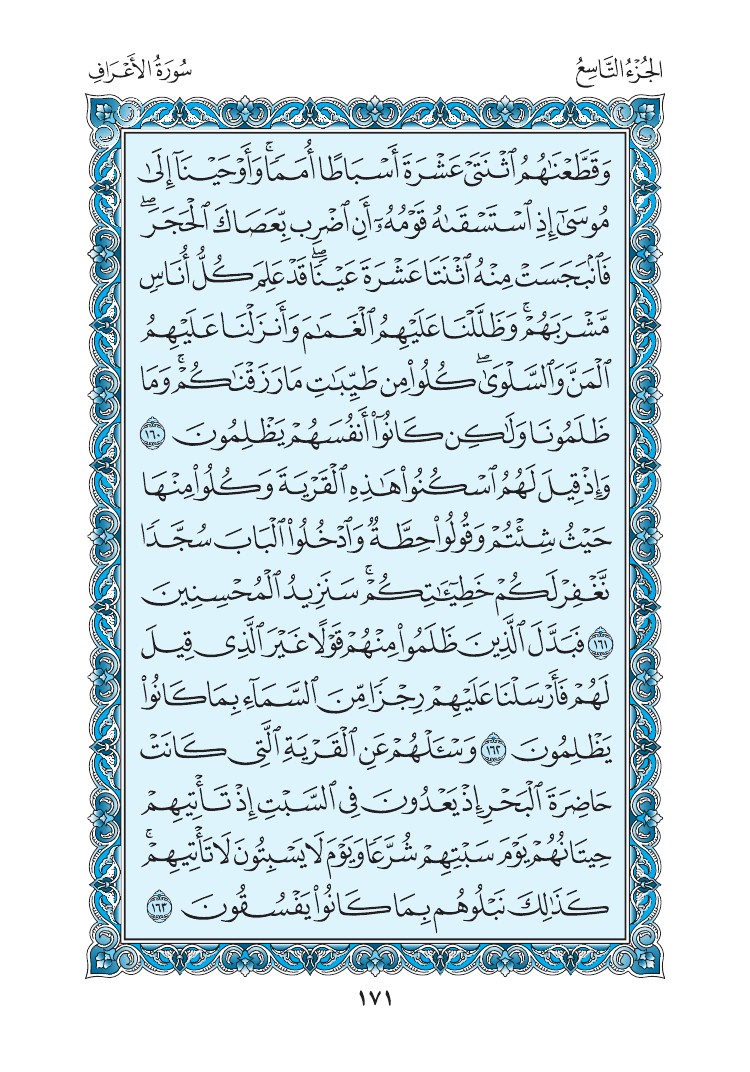 الجُزْءُ التَّاسِعُ
سُورَةُ الأَعْرَافِ
وَقَطَّعْنَٰهُمُ ٱثْنَتَيْ عَشْرَةَ أَسْبَاطًا أُمَمًاۚ وَأَوْحَيْنَآ إِلَىٰ
مُوسَىٰٓ إِذِ ٱسْتَسْقَىٰهُ قَوْمُهُۥٓ أَنِ ٱضْرِب بِّعَصَاكَ ٱلْحَجَرَۖ
فَٱنۢبَجَسَتْ مِنْهُ ٱثْنَتَا عَشْرَةَ عَيْنًاۖ قَدْ عَلِمَ كُلُّ أُنَاسٍ
مَّشْرَبَهُمْۚ وَظَلَّلْنَا عَلَيْهِمُ ٱلْغَمَٰمَ وَأَنزَلْنَا عَلَيْهِمُ
ٱلْمَنَّ وَٱلسَّلْوَىٰۖ كُلُوا۟ مِن طَيِّبَٰتِ مَا رَزَقْنَٰكُمْۚ وَمَا
ظَلَمُونَا وَلَٰكِن كَانُوٓا۟ أَنفُسَهُمْ يَظْلِمُونَ ١٦٠
وَإِذْ قِيلَ لَهُمُ ٱسْكُنُوا۟ هَٰذِهِ ٱلْقَرْيَةَ وَكُلُوا۟ مِنْهَا
حَيْثُ شِئْتُمْ وَقُولُوا۟ حِطَّةٌ وَٱدْخُلُوا۟ ٱلْبَابَ سُجَّدًا
نَّغْفِرْ لَكُمْ خَطِيٓـَٰٔتِكُمْۚ سَنَزِيدُ ٱلْمُحْسِنِينَ
١٦١ فَبَدَّلَ ٱلَّذِينَ ظَلَمُوا۟ مِنْهُمْ قَوْلًا غَيْرَ ٱلَّذِي قِيلَ
لَهُمْ فَأَرْسَلْنَا عَلَيْهِمْ رِجْزًا مِّنَ ٱلسَّمَآءِ بِمَا كَانُوا۟
يَظْلِمُونَ ١٦٢ وَسْـَٔلْهُمْ عَنِ ٱلْقَرْيَةِ ٱلَّتِي كَانَتْ
حَاضِرَةَ ٱلْبَحْرِ إِذْ يَعْدُونَ فِي ٱلسَّبْتِ إِذْ تَأْتِيهِمْ
حِيتَانُهُمْ يَوْمَ سَبْتِهِمْ شُرَّعًا وَيَوْمَ لَا يَسْبِتُونَ لَا تَأْتِيهِمْۚ
كَذَٰلِكَ نَبْلُوهُم بِمَا كَانُوا۟ يَفْسُقُونَ ١٦٣
١٧١